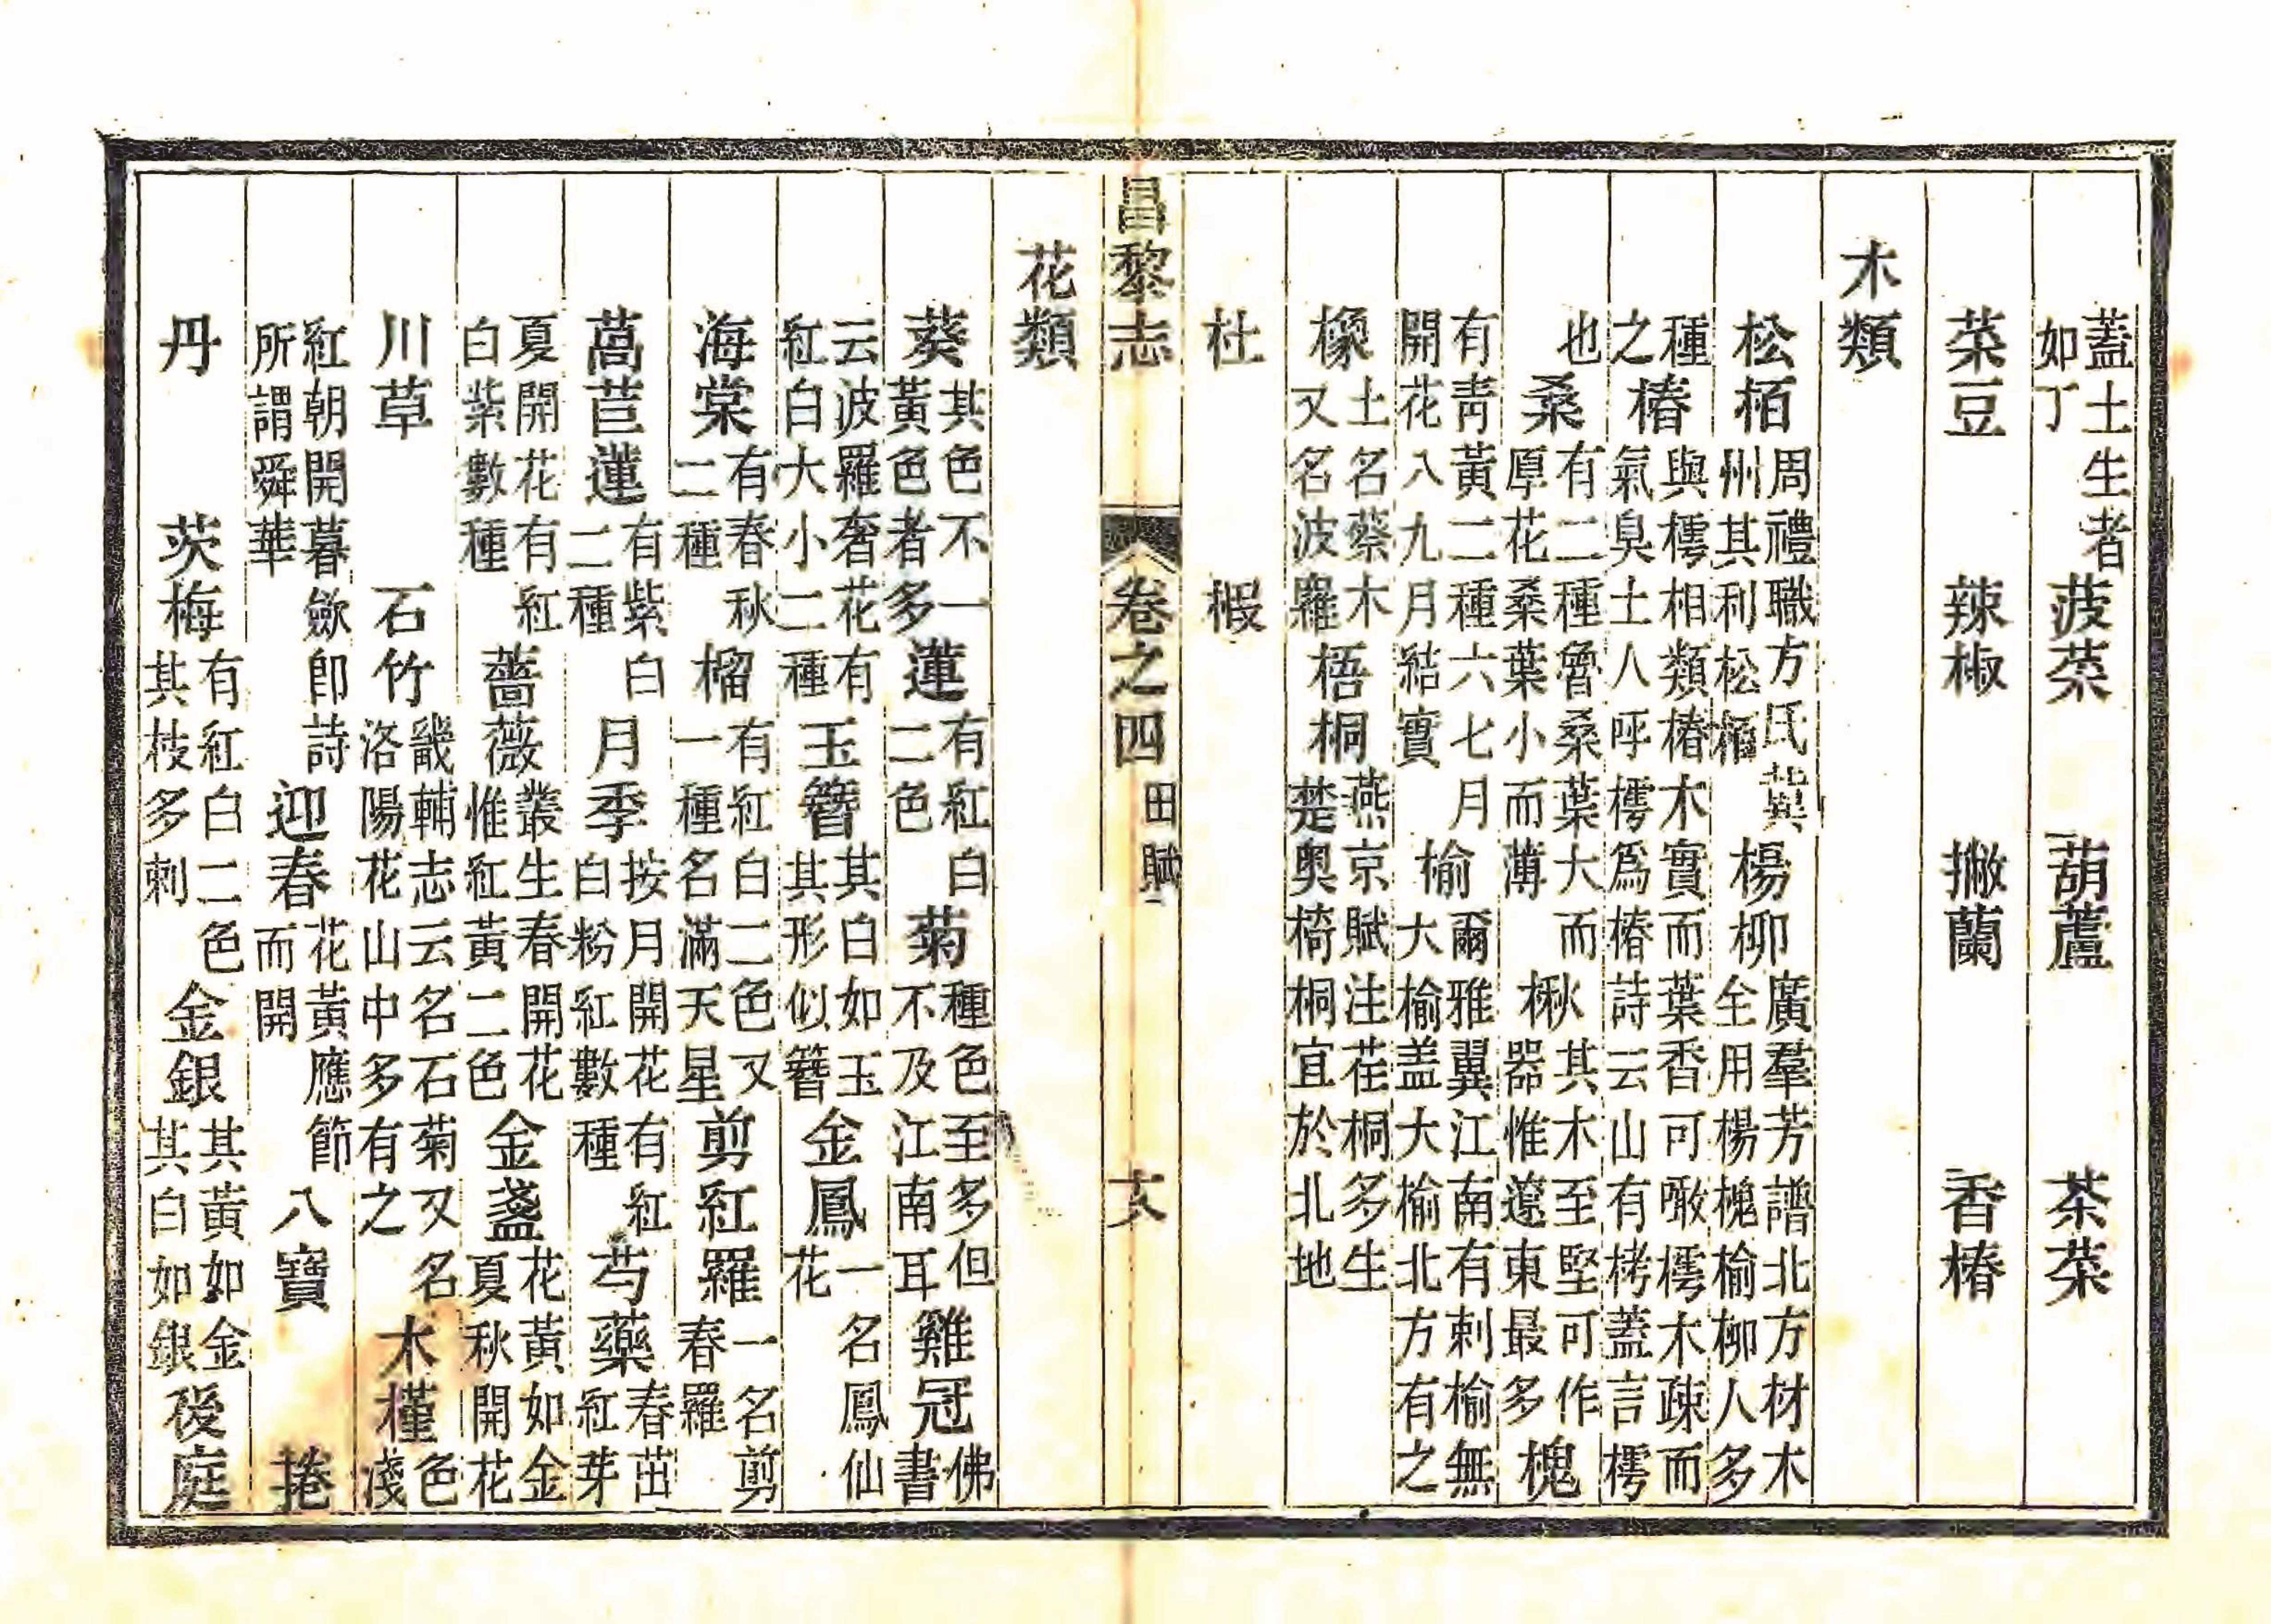 蓋土生者如丁　菠菜　葫蘆　茶菜
菜豆　辣椒　撇蘭　香椿
木類
松栢周禮職方氏冀州其利松栢　楊柳廣羣芳譜北方材木全用楊槐榆柳人多
種之椿與樗相類椿木實而葉香可噉樗木疎而氣臭土人呼樗爲椿詩云山有栲蓋言樗
也　桑有二種魯桑葉大而原花桑葉小而薄　楸其木至堅可作器惟遼東最多槐
有青黃二種六七月開花八九月結實　榆爾雅翼江南有刺榆無大榆盖大榆北方有之
橡土名蔡木又名波羅梧桐燕京賦注荏桐多生楚奥椅桐宜於北地
杜　椵
昌黎志　卷之四　田賦　十八
花類
葵其色不一黃色者多蓮有紅白二色　菊種色至多但不及江南耳雞冠佛書
云波羅奢花有紅白大小二種玉簪其白如玉其形似簪金鳳一名鳳仙花
海棠有春秋二種　榴有紅白二色又一種名滿天星剪紅羅一名剪春羅
萵苣蓮有紫白二種　月季按月開花有紅白粉紅數種　芍藥春茁紅芽
夏開花有紅白紫數種　薔薇叢生春開花惟紅黃二色金盞花黃如金夏秋開花
川草　石竹畿輔志云名石菊又名洛陽花山中多有之　木槿色淺
紅朝開暮歛卽詩所謂舜華　迎春花黃應節而開　八寶　捲
丹　茨梅有紅白二色其枝多刺　金銀其黃如金其白如銀後庭